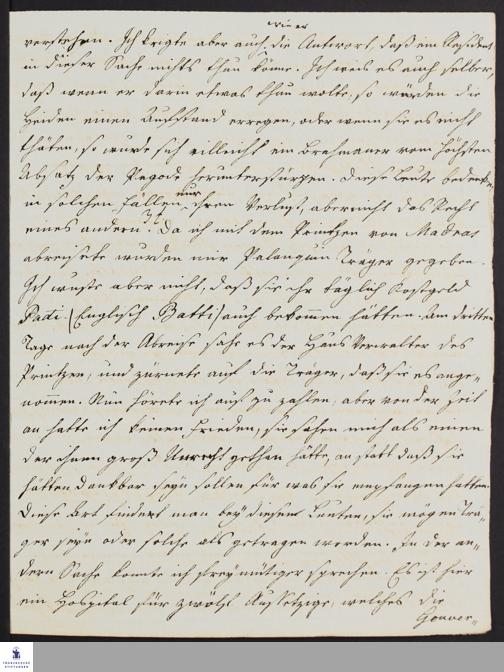 wieder
verstehen. Ich kriegte aber auch die Antwort, daß ein Resident
in dieser Sache nichts thun könne. Ich weis es auch selber,
daß wenn er darin etwas thun wolte, so würden die
Heiden einen Aufstand erregen, oder wenn sie es nicht
thäten, so würde sich villeicht ein Brahmaner vom höchsten
Absatz der Pagode herunterstürzen. Diese Leute bedenken
nur
in solchen Fällen ihren Verlust, aber nicht das Recht
eines andern. Da ich mit dem Printzen von Madras
abreisete wurden mir Palanquin Träger gegeben.
Ich wuste aber nicht, daß sie ihr täglich Kostgeld
Padi. (Englisch Batti) auch bekommen hatten. Am dritten
Tage nach der Abreise sahe es der Haus Verwalter des
Printzen, und zürnete auf die Träger, daß sie es ange-
nommen. Nun hörete ich auf zu zahlen, aber von der Zeit
an hatte ich keinen Frieden, sie sahen mich als einen
der ihnen groß Unrecht gethan hätte, an statt daß sie
hätten dankbar seyn sollen für was sie empfangen hatten.
Diese Art findet man bey diesen Leuten, sie mögen Trä-
ger seyn oder solche als getragen werden. In der an-
dern Sache konte ich freymütiger sprechen. Es ist hier
ein Hospital für zwölf Aussetzige, welches die
Gouver-
FRANCKESCHE
STIFTUNGEN